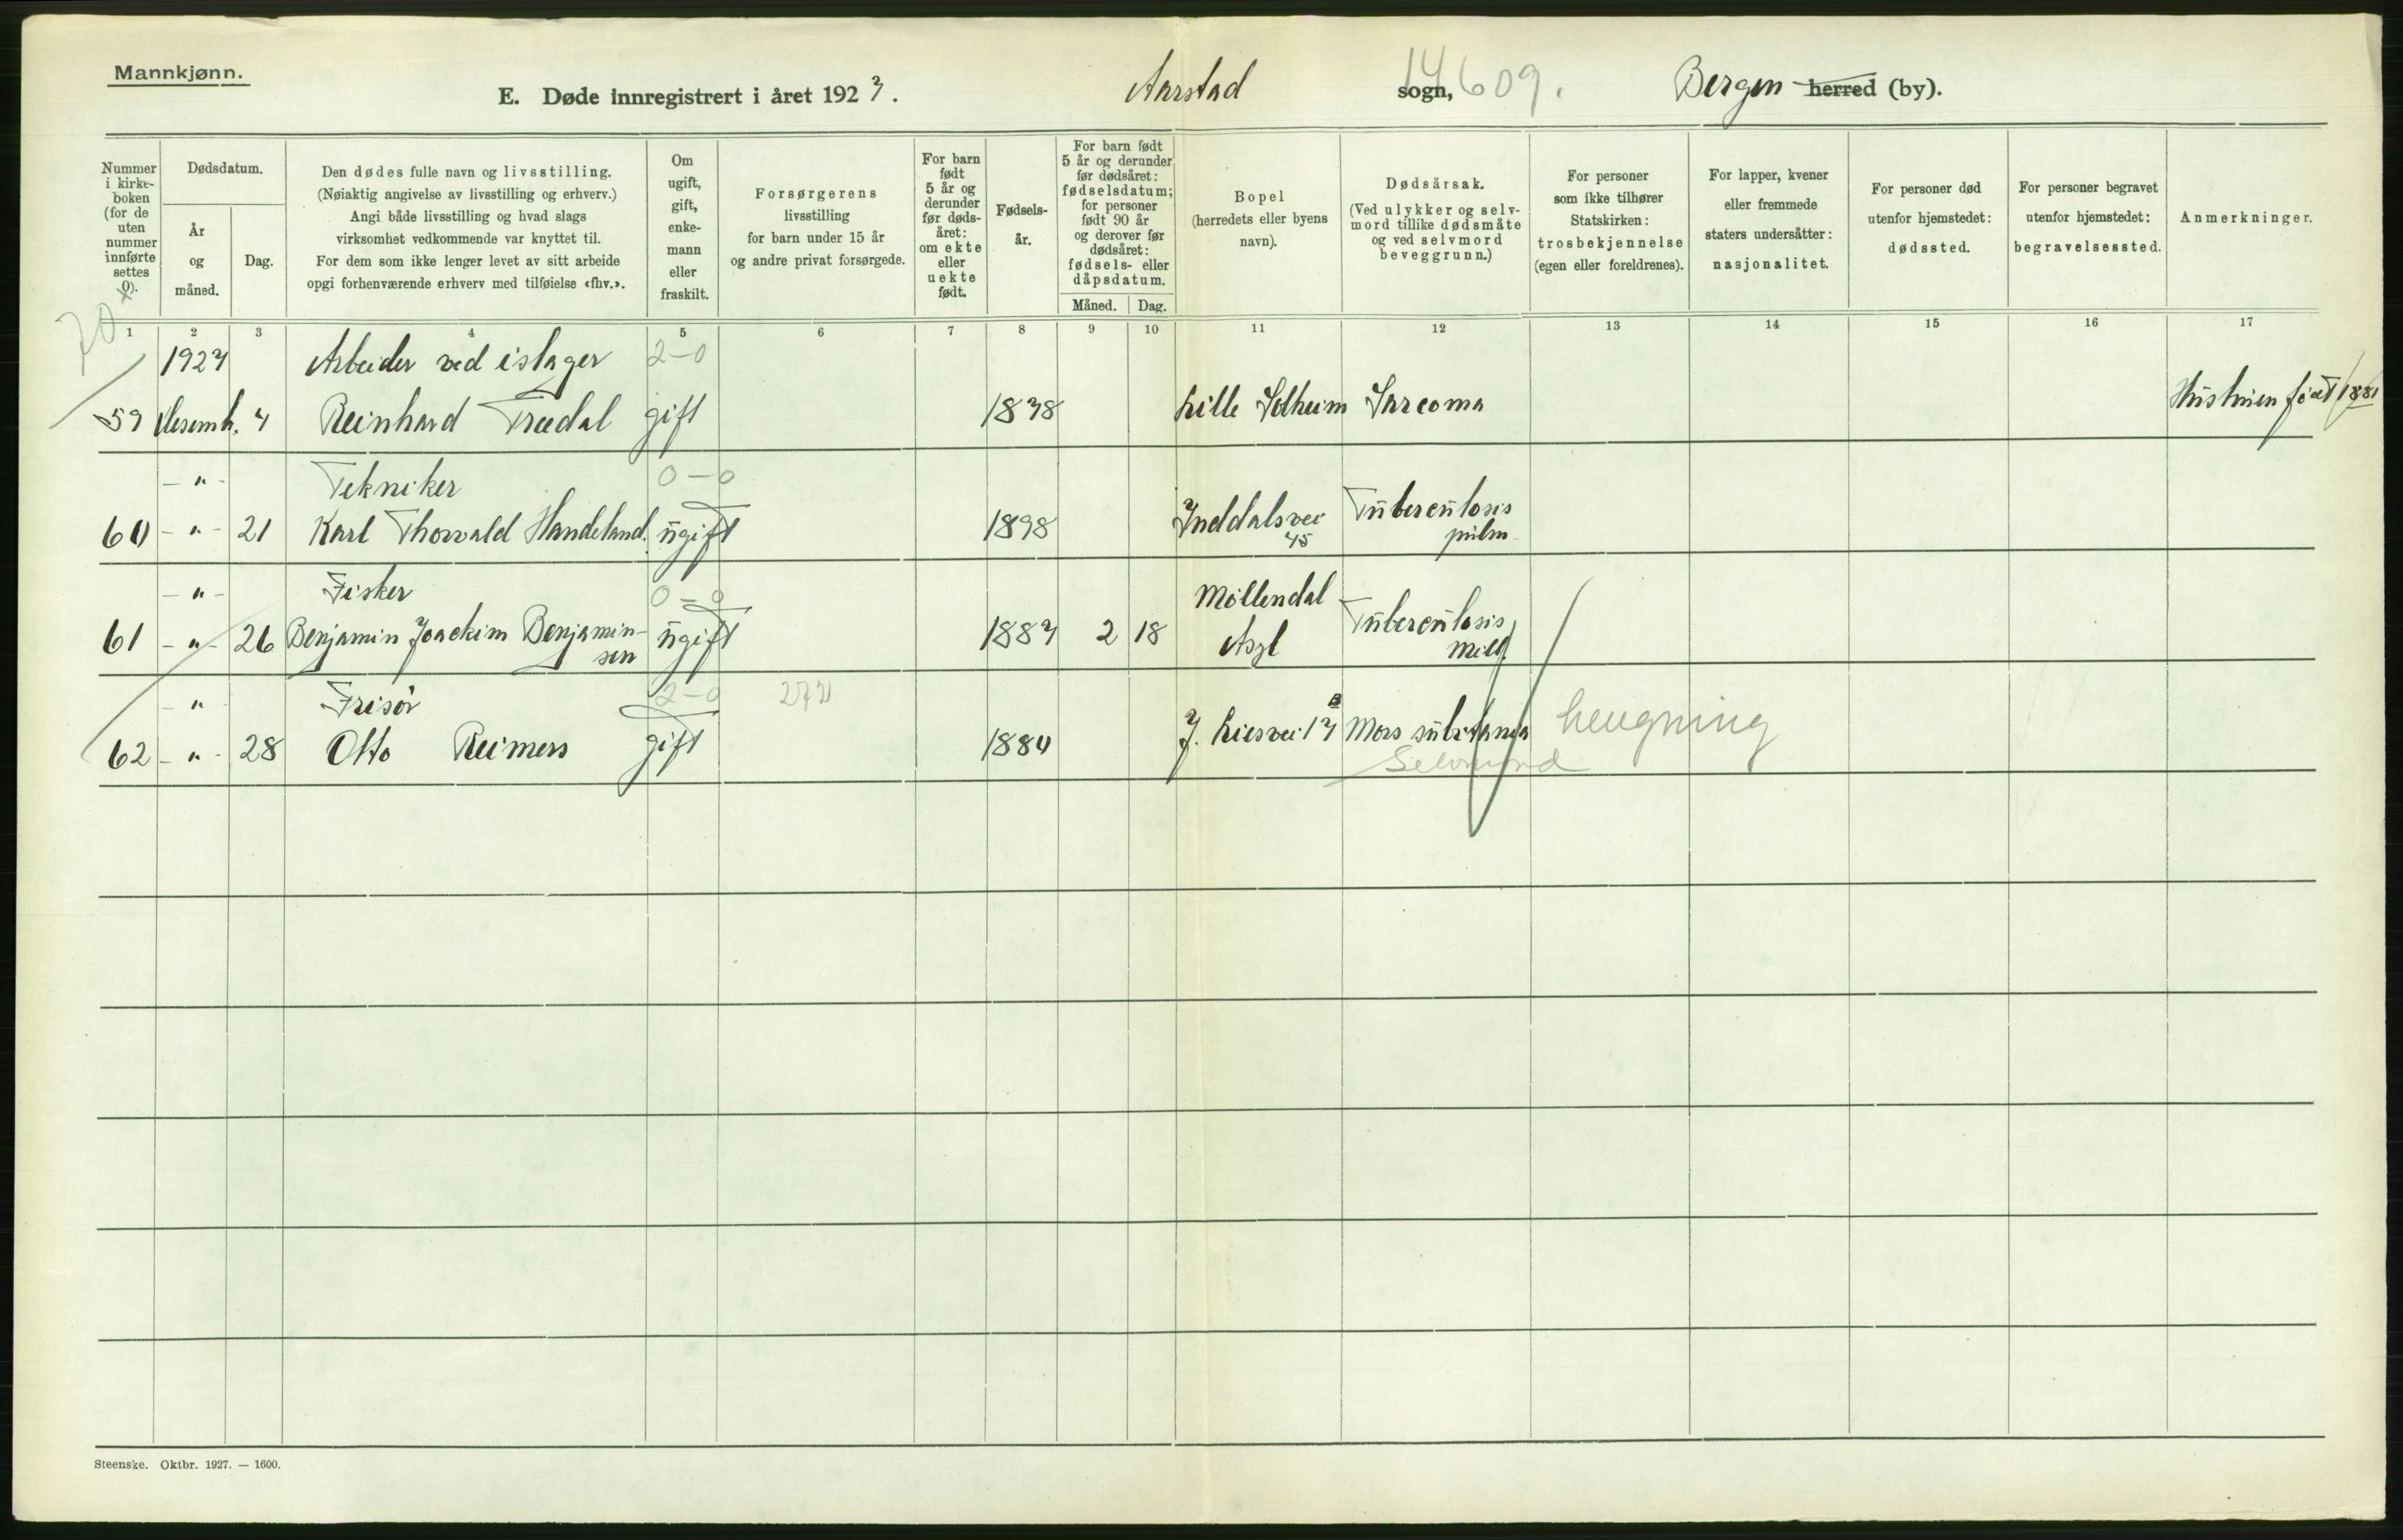 Mannkjønn.
E. Døde innregistrert i året 1927. Aarstad sogn, 14609. Bergen herred (by).
Nummer i kirke-boken (for de uten nummer innførte settes 0).
Dødsdatum.
År og måned.
Dag.
Den dødes fulle navn og livsstilling.
(Nøiaktig angivelse av livsstilling og erhverv.)
Angi både livsstilling og hvad slags
virksomhet vedkommende var knyttet til.
For dem som ikke lenger levet av sitt arbeide
opgi forhenværende erhverv med tilføielse «fhv.».
Om ugift, gift, enke-mann eller fraskilt.
Forsørgerens
livsstilling
for barn under 15 år
og andre privat forsørgede.
For barn født 5 år og derunder før døds-året: om ekte eller uekte født.
Fødsels-år.
For barn født
5 år og derunder
før dødsåret:
fødselsdatum;
for personer
født 90 år
og derover før
dødsåret:
fødsels- eller
dåpsdatum.
Måned. Dag.
Bopel
(herredets eller byens
navn).
Dødsårsak.
(Ved ulykker og selv-
mord tillike dødsmåte
og ved selvmord
beveggrunn.)
For personer
som ikke tilhører
Statskirken:
trosbekjennelse
(egen eller foreldrenes).
For lapper, kvener
eller fremmede
staters undersåtter:
nasjonalitet.
For personer død
utenfor hjemstedet:
dødssted.
For personer begravet
utenfor hjemstedet:
begravelsessted.
Anmerkninger.
1 2 3 4 5 6 7 8 9 10 11 12 13 14 15 16 17
70
1927 Arbeider ved islager 2-0
59 Desemb. 7 Reinhard Trædal gift 1878 Lille Solheim Sarcoma Hustruen født 1881
- " - Tekniker 0-0
60 - " - 21 Karl Thorvald Handeland. ugift 1898 Inddalsvei 45 Tuberculosis pulm
- " - Fisker 0-0 Möllendal
61 - " - 26 Benjamin Joachim Benjaminsen ugift 1887 2 18 Asyl Tuberculosis mili
- " - Frisör 2-0 272
62 - " - 28 Otto Reimers gift 1884 J. Liesvei 17 B Mors subitanea hengning
Selvmord
Steenske. Oktbr. 1927. — 1600.